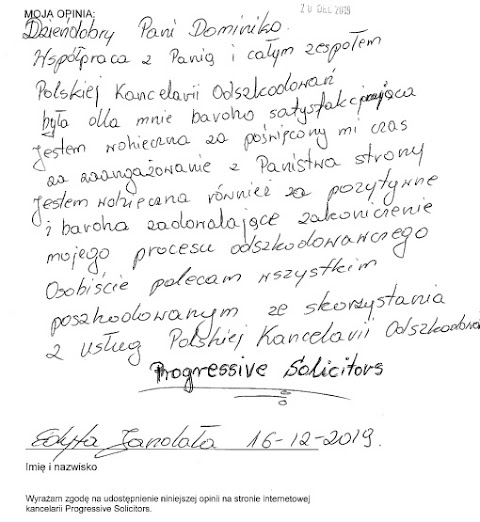 MOJA OPINIA:
20 DEC 2019
Dzieńdobry Pani Dominiko.
Współpraca z Panią i całym zespołem
Polskiej Kancelarii Odszkodowań
była dla mnie bardzo satysfakcjonująca
Jestem wdzięczna za poświęcony mi czas
za zaangażowanie z Państwa strony
Jestem wdzięczna również za pozytywne
i bardzo zadowalające zakończenie
mojego procesu odszkodowawczego
Osobiście polecam wszystkim
poszkodowanym ze skorzystania
z usług Polskiej Kancelarii Odszkodowań
Progressive Solicitors
Edyta 16-12-2019.
Imię i nazwisko
Wyrażam zgodę na udostępnienie niniejszej opinii na stronie internetowej
kancelarii Progressive Solicitors.